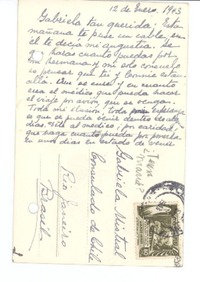 12 de Enero, 1943
Gabriela tan querida: Esta
mañana te puse un cable, en
él te decía mi angustia. Se
que harás cuanto puedas por
mi hermana y mi solo consuelo
es pensar que tú y Connie están
allá. Que se cure, y en cuanto
crea el médico que puede hacer
el viaje por avión, que se venga.
Toda mi ilusión, toda
es que pueda venir dentro de
días. Dile al médico, por caridad,
que haga cuanto pueda por ponerla
en unos días en estado de venir
Gabriela Mistral
Consulado de Chile
Rio Janeiro
Brasil